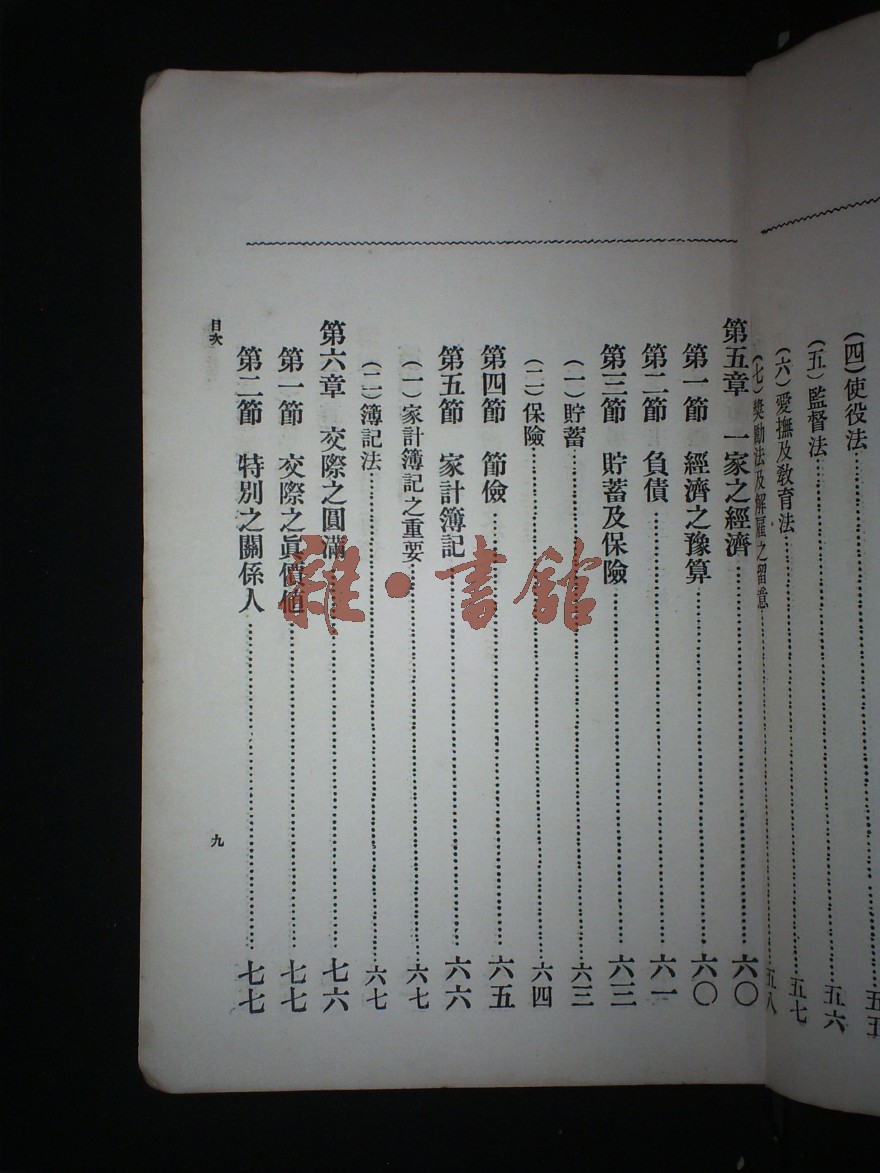 （四）使役法……五五
（五）監督法……五六
（六）愛撫及教育法……五七
（七）獎勵法及解雇之留意……五八
第五章　一家之經濟……六〇
第一節　經濟之豫算……六〇
第二節　負債……六一
第三節　貯蓄及保險……六三
（一）貯蓄……六三
（二）保險……六四
第四節　節儉……六五
第五節　家計簿記……六六
（一）家計簿記之重要……六七
（二）簿記法……六七
第六章　交際之圓滿……七六
第一節　交際之眞價値……七七
第二節　特別之關係人……七七
目次
九
雜·書館